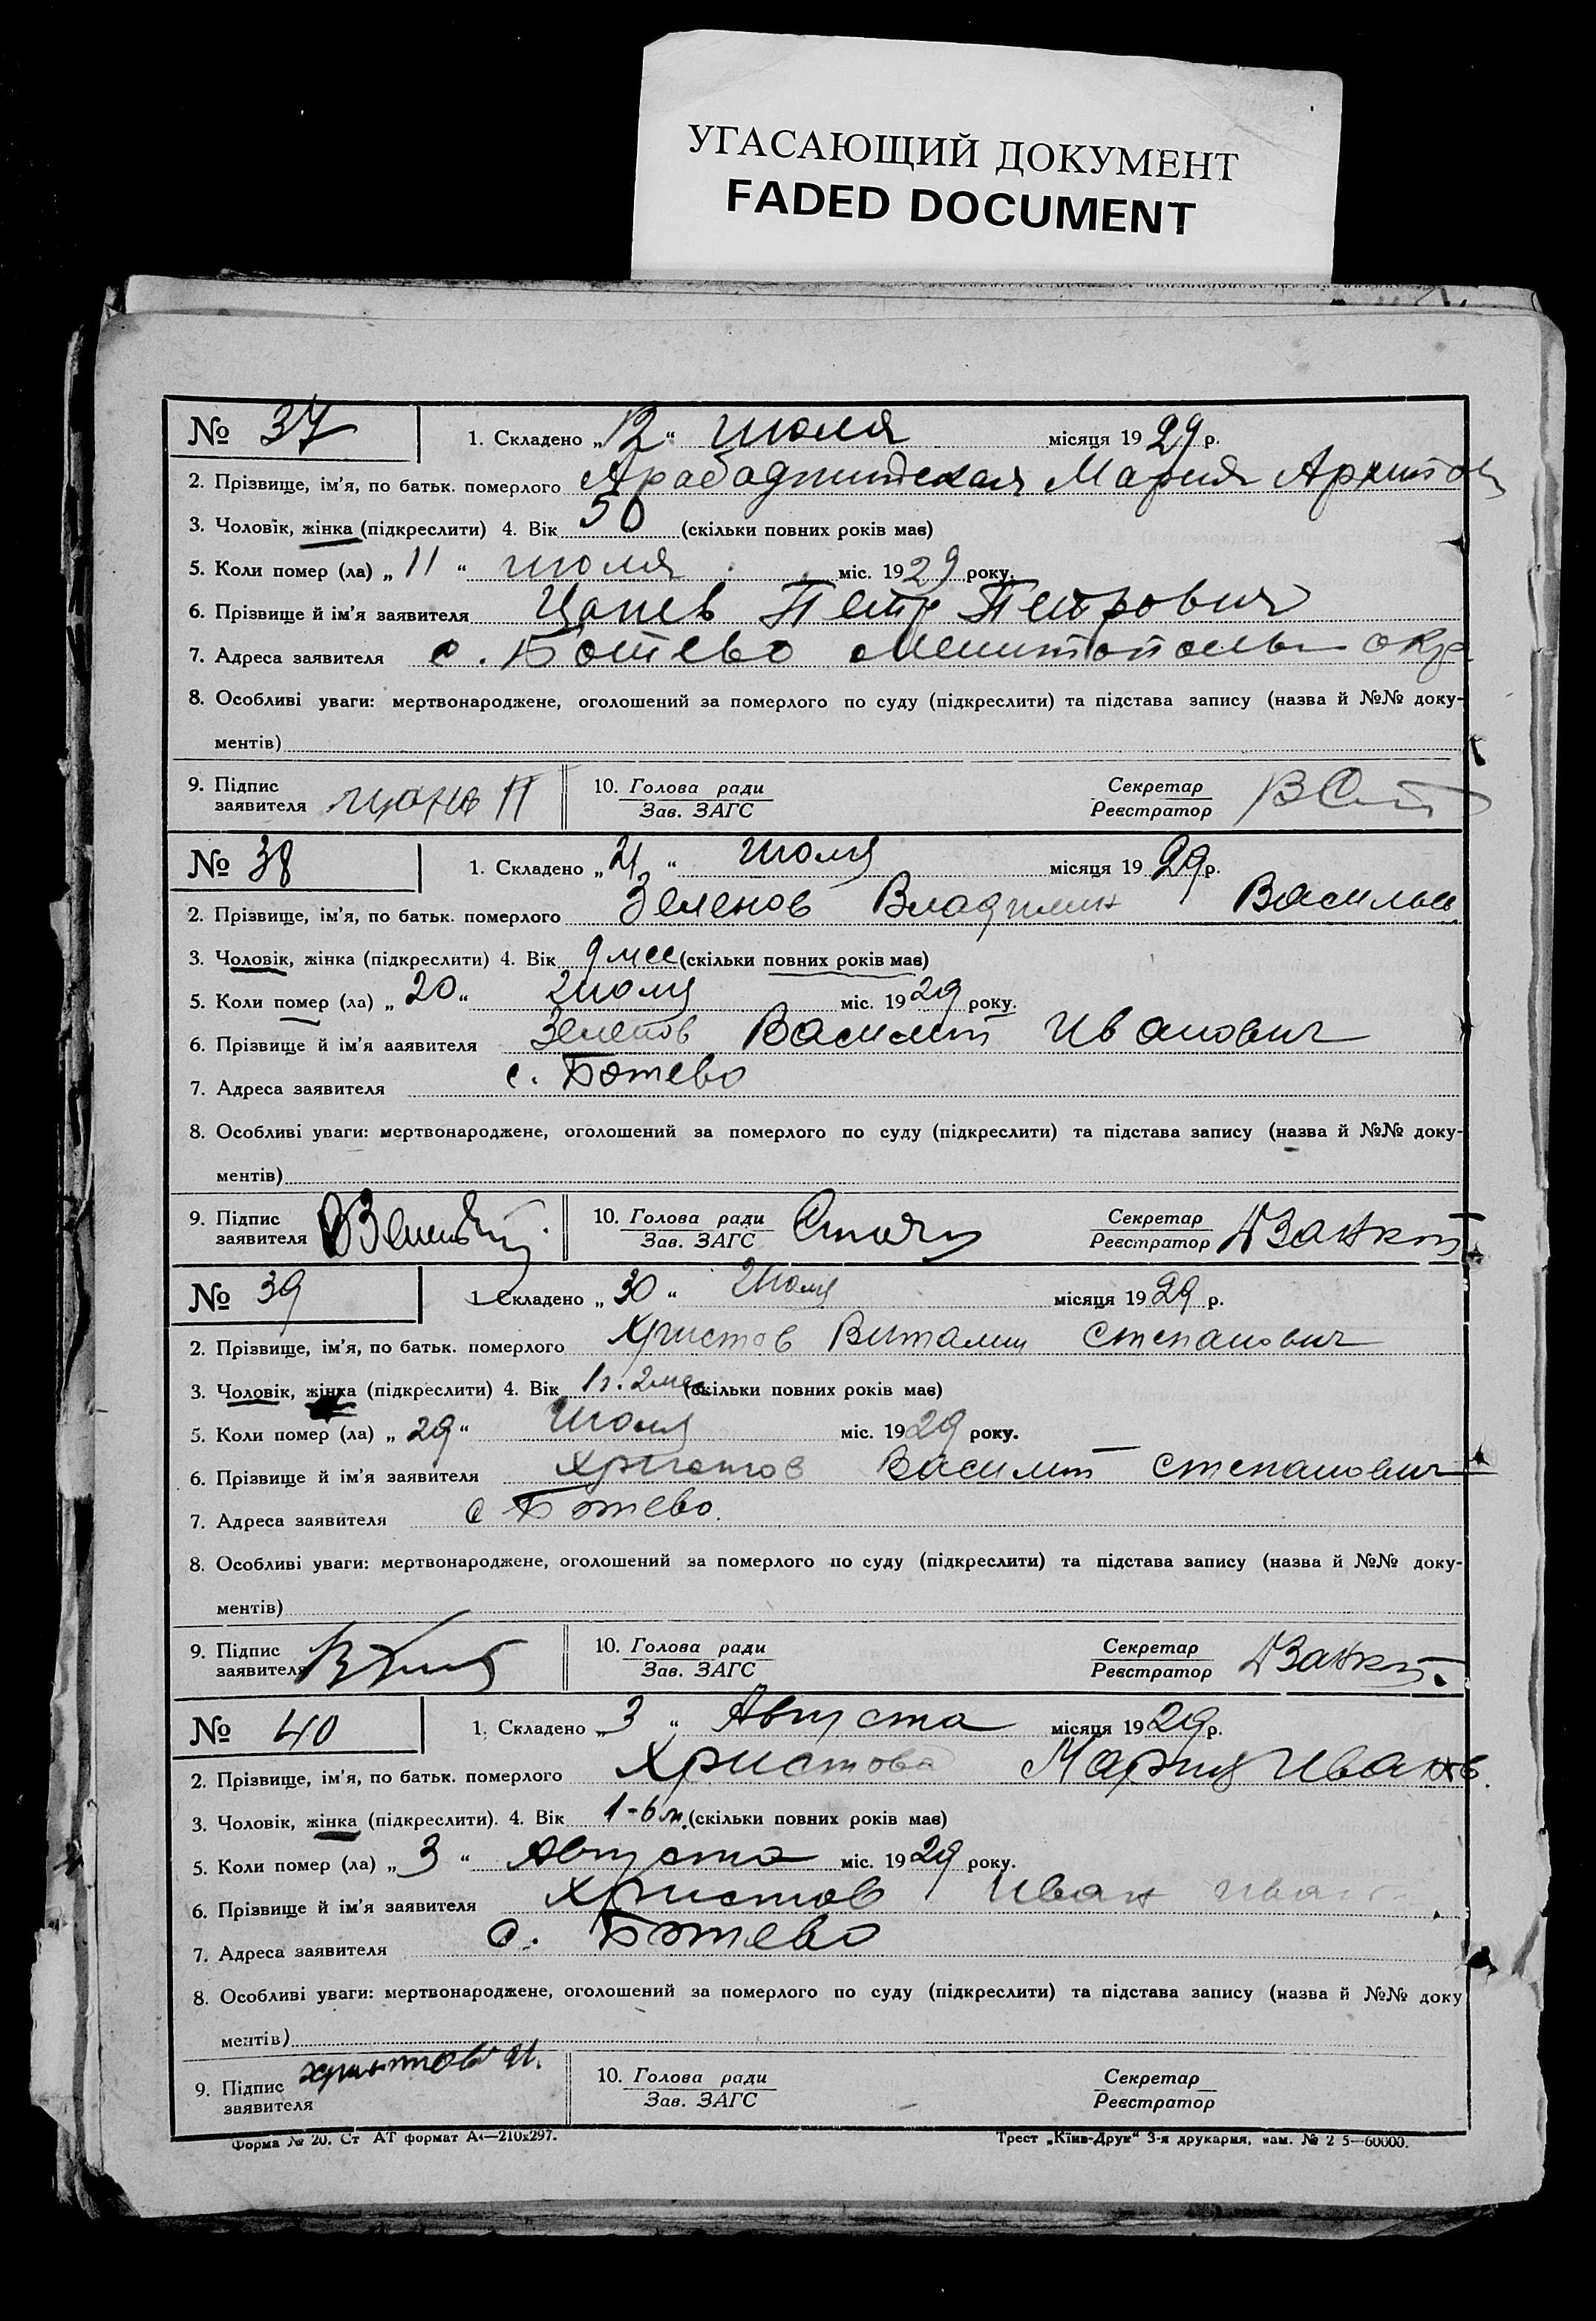 УГАСАЮЩИЙ ДОКУМЕНТ
FADED DOCUMENT
№ 37 1. Складено „12“ июля місяця 1929 р.
2. Прізвище, ім'я, по батьк. померлого Мария
3. Чоловік, жінка (підкреслити) 4. Вік 50 (скільки повних років має)
5. Коли помер (ла) „11“ июля міс. 1929 року.
6. Прізвище й ім'я заявителя Петр Петрович
7. Адреса заявителя с. Ботево окр
8. Особливі уваги: мертвонароджене, оголошений за померлого по суду (підкреслити) та підстава запису (назва й №№ доку-
ментів)
9. Підпис заявителя 10. Голова ради Зав. ЗАГС Секретар Реєстратор
№ 38 1. Складено „21“ Июля місяця 1929 р.
2. Прізвище, ім'я, по батьк. померлого Зеленов Владимир Васильев
3. Чоловік, жінка (підкреслити) 4. Вік 9 мес (скільки повних років має)
5. Коли помер (ла) „20“ Июля міс. 1929 року.
6. Прізвище й ім'я ааявителя Зеленов Василий Иванович
7. Адреса заявителя с. Ботево
8. Особливі уваги: мертвонароджене, оголошений за померлого по суду (підкреслити) та підстава запису (назва й №№ доку-
ментів)
9. Підпис заявителя 10. Голова ради Зав. ЗАГС Секретар Реєстратор
№ 39 1. Складено „30“ Июля місяця 1929 р.
2. Прізвище, ім'я, по батьк. померлого Христов Виталий Степанович
3. Чоловік, жінка (підкреслити) 4. Вік 1 г. 2 мес (скільки повних років має)
5. Коли помер (ла) „29“ Июля міс. 1929 року.
6. Прізвище й ім'я заявителя Христов Василий Степанович
7. Адреса заявителя с Ботево.
8. Особливі уваги: мертвонароджене, оголошений за померлого по суду (підкреслити) та підстава запису (назва й №№ доку-
ментів)
9. Підпис заявителя 10. Голова ради Зав. ЗАГС Секретар Реєстратор
№ 40 1. Складено „3“ Августа місяця 1929 р.
2. Прізвище, ім'я, по батьк. померлого Христова Мария Иванов.
3. Чоловік, жінка (підкреслити). 4. Вік 1-6 м. (скільки повних років має)
5. Коли помер (ла) „3“ Августа міс. 1929 року.
6. Прізвище й ім'я заявителя Христов Иван
7. Адреса заявителя с. Ботево
8. Особливі уваги: мертвонароджене, оголошений за померлого по суду (підкреслити) та підстава запису (назва й №№ доку
ментів)
9. Підпис заявителя Христов И. 10. Голова ради Зав. ЗАГС Секретар Реєстратор
Форма № 20. Ст АТ формат А4—210x297. Трест „Київ-Друк“ 3-я друкарня, 60000.